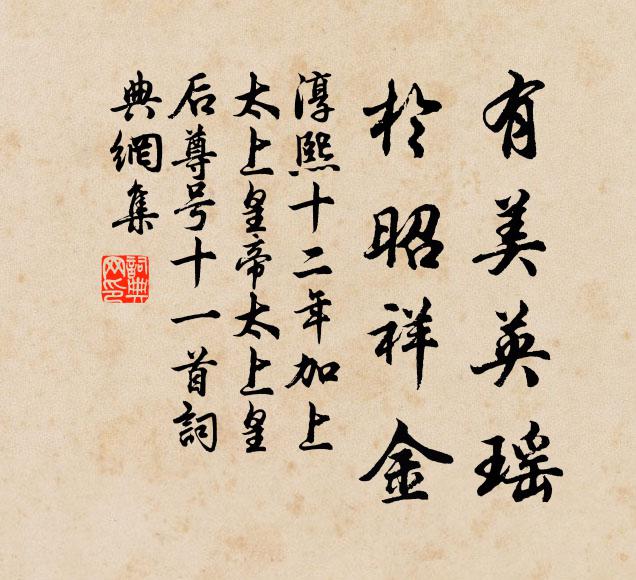 有美英瑶
於昭祥金
淳熙十二年加上
太上皇帝太上皇
后尊号十一首詞
典網集
詞典網印